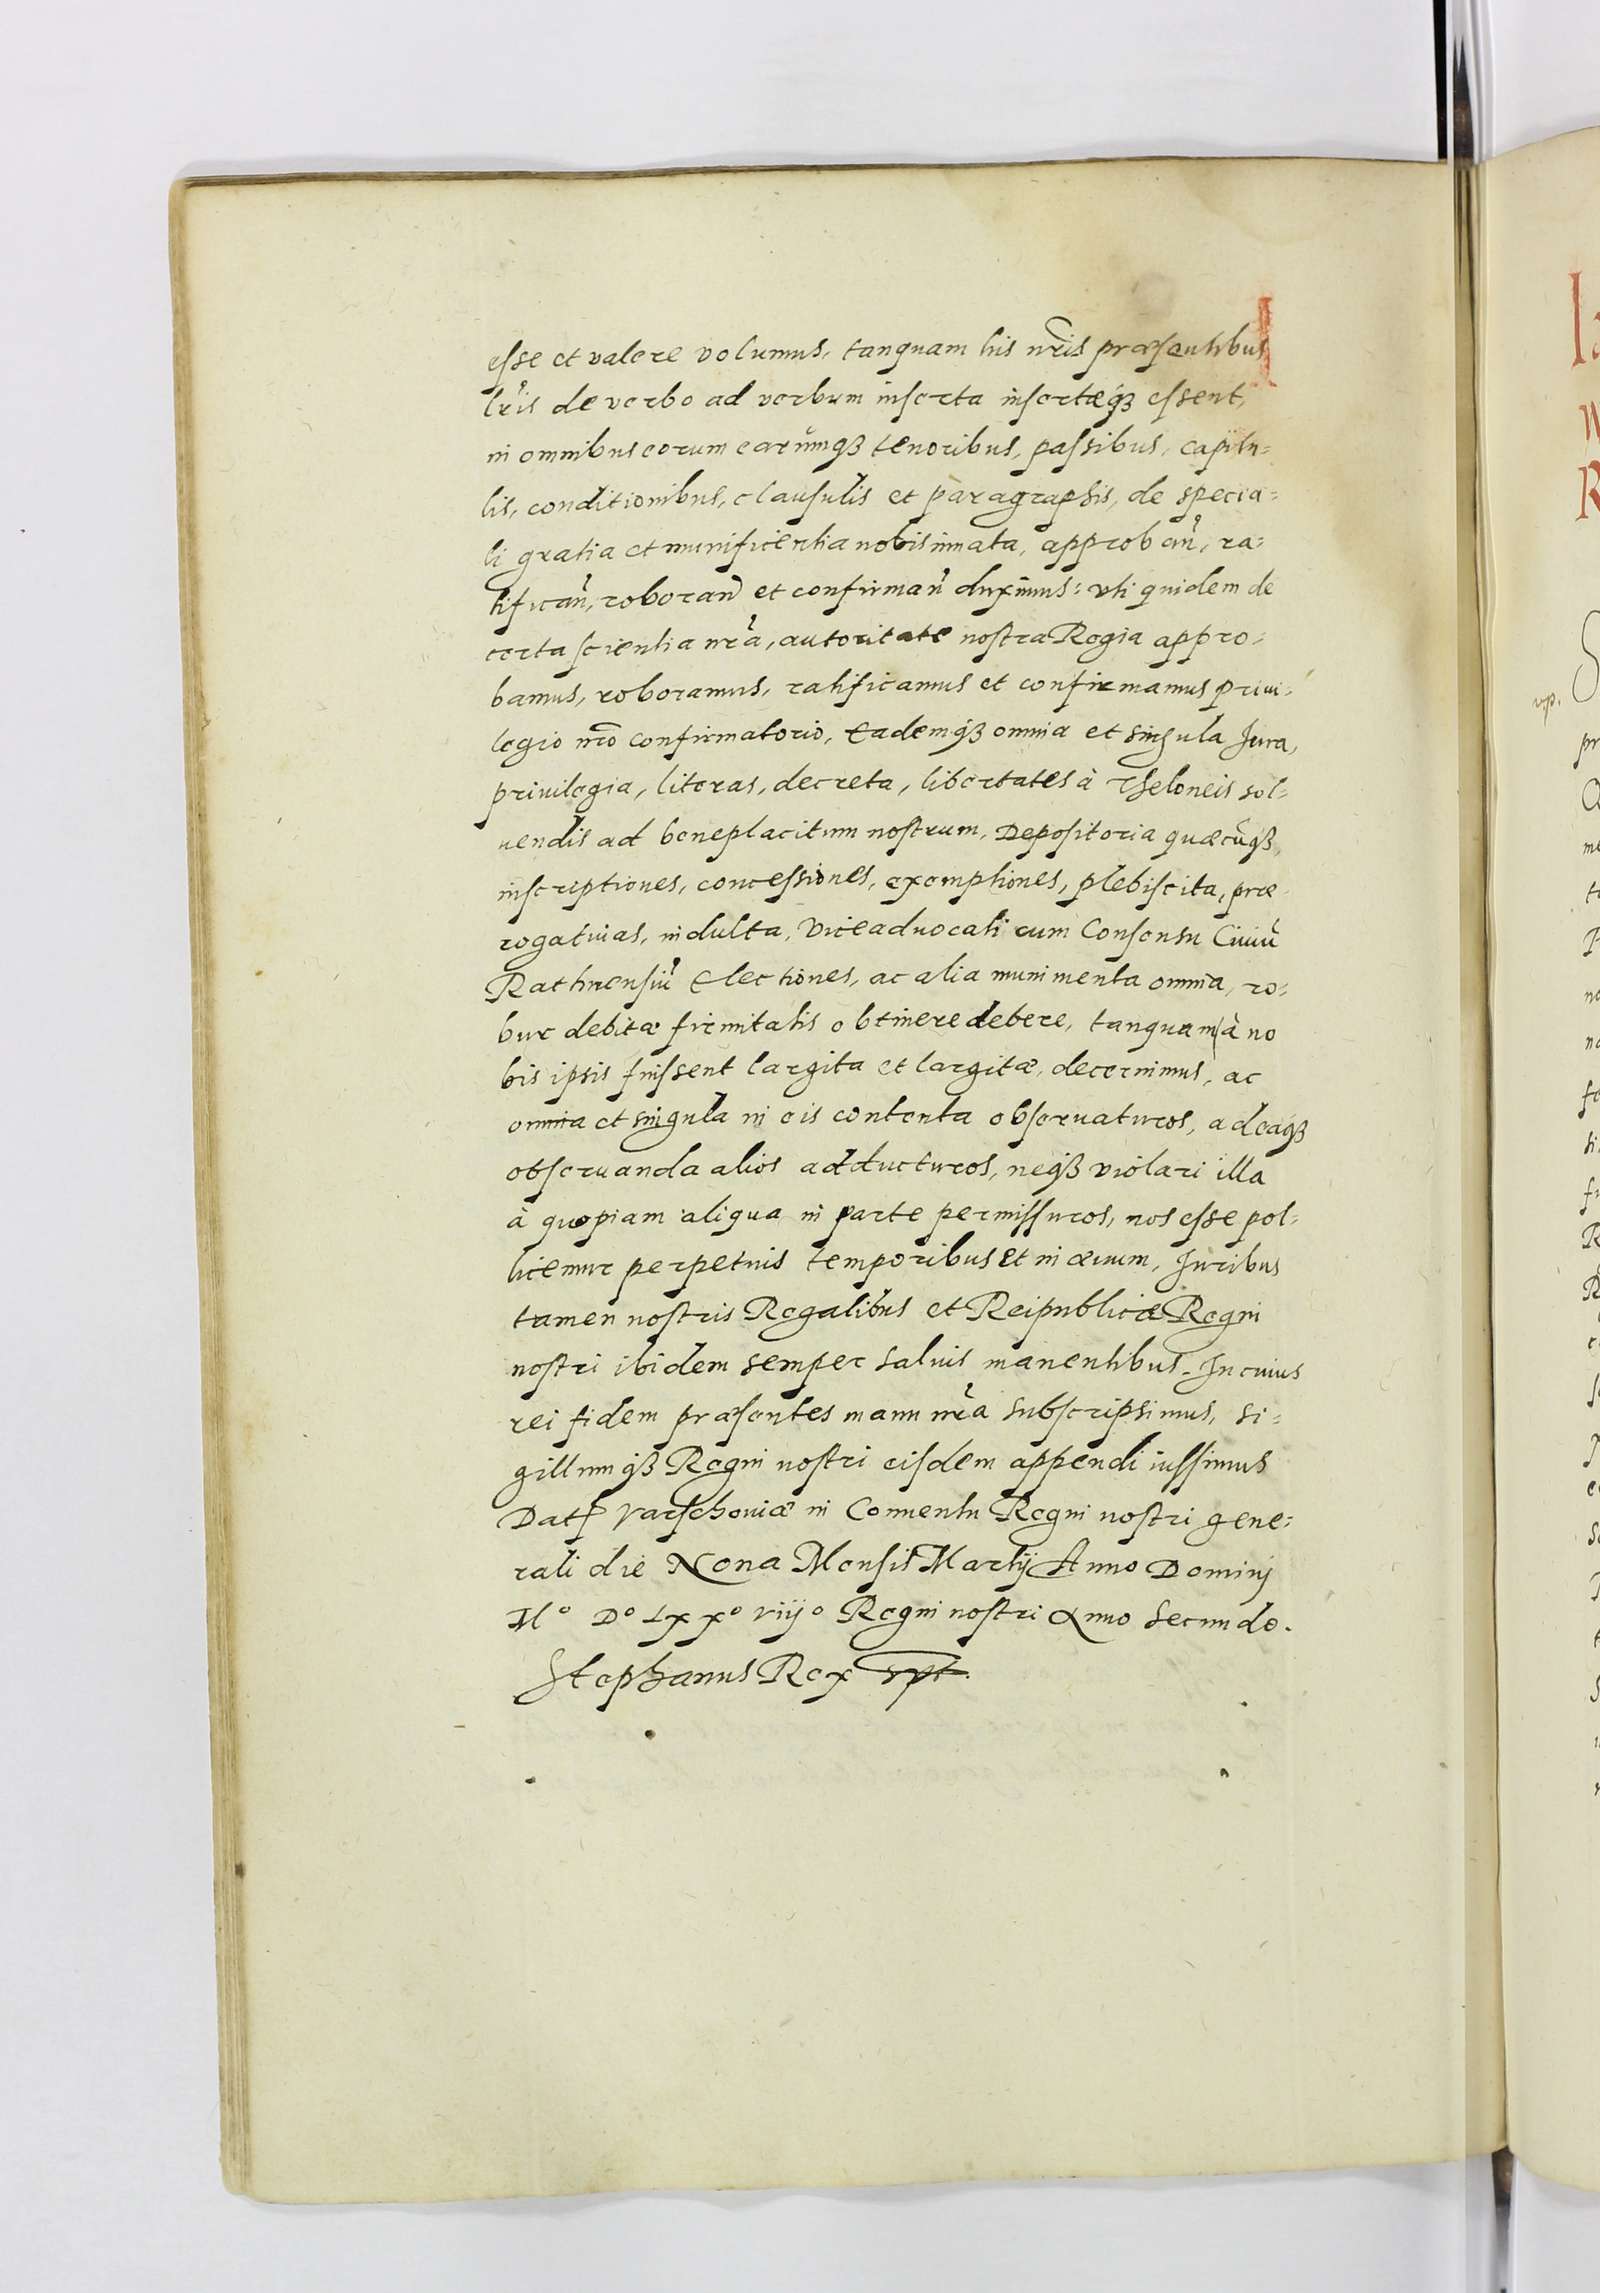 esse et valere volumus, tanquam his nr̃is præsentibus
lr̃is de verbo ad verbum inserta insertæqꝫ essent,
in omnibus eorum earumqꝫ tenoribus, passibus, capitu=
lis, conditionibus, clausulis et paragraphis, de specia=
li gratia et munificentia nobis innata, approban̄, ra=
tifican̄, roboran̄ et confirman̄ duximus: vti quidem de
certa scientia nr̃a, autoritate nostra Regia appro=
bamus, roboramus, ratificamus et confirmamus priui=
legio nr̃o confirmatorio, Eademqꝫ omnia et singula Jura,
priuilegia, literas, decreta, libertates à Theloneis sol=
uendis ad beneplacitum nostrum, Depositoria quæcūqꝫ,
inscriptiones, concessiones, exemptiones, plebiscita, præ=
rogatiuas, indulta, Viceaduocati cum Consensu Ciuiū
Rathnensiū Electiones, ac alia munimenta omnia, ro=
bur debitæ firmitatis obtinere debere, tanquam à no
bis ipsis fuissent largita et largitæ, decernimus, ac
omnia et singula in eis contenta obseruaturos, adeaqꝫ
obseruanda alios adducturos, neqꝫ violari illa
à quopiam aliqua in parte permissuros, nos esse pol=
licemur perpetuis temporibus Et in æuum, Juribus
tamen nostris Regalibus et Reipublicæ Regni
nostri ibidem semper saluis manentibus. In cuius
rei fidem præsentes manu nr̃a subscripsimus, si=
gillumqꝫ Regni nostri eisdem appendi iussimus
Datꝭ Varschouiæ in Conuentu Regni nostri gene=
rali die Nona Mensis Martij Anno Dominj
Mº Dº Lxxº viijº Regni nostri Anno Secundo.
Stephanus Rex spt.
vp.